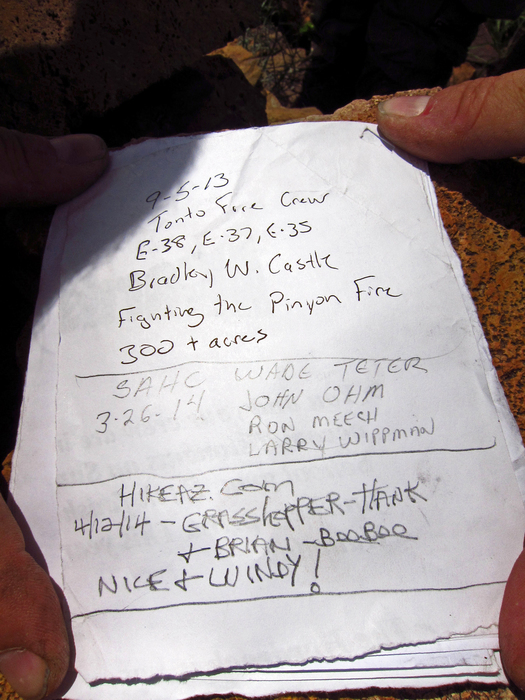 9-5-13
Tonto Fire Crew
E-38, E-37, E-35
Bradley W. Castle
Fighting the Pinyon Fire
300 + acres
SAHC WADE TETER
3-26-14 JOHN OHM
RON MEECH
LARRY WIPPMAN
HIKEAZ.COM
4/12/14 - GRASSHOPPER-HANK
+ BRIAN - BOOBOO
NICE & WINDY!